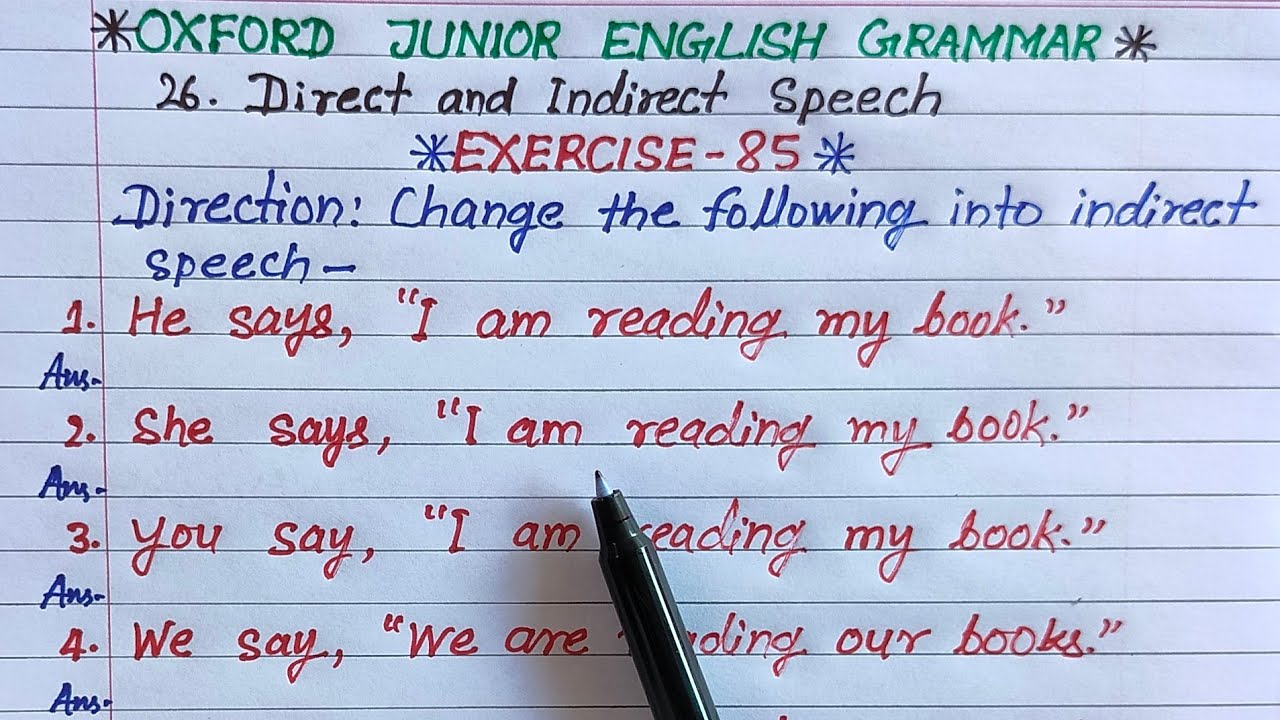 *OXFORD JUNIOR ENGLISH GRAMMAR*
26. Direct and Indirect Speech
*EXERCISE-85*
Direction: Change the following into indirect
speech-
1. He says, "I am reading my book."
Ans-
2. She says, "I am reading my book."
Ans-
3. You say, "I am reading my book."
Ans-
4. We say, "We are reading our books."
Ans-